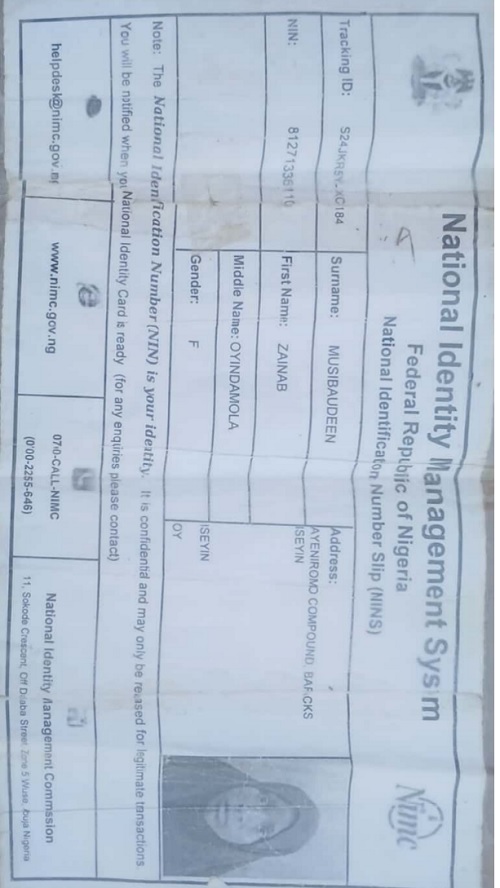 National Identity Management System
Federal Republic of Nigeria
National Identification Number Slip (NINS)
Nimc
Tracking ID:
Surname: MUSIBAUDEEN
Address:
AYENIROMO COMPOUND,
ISEYIN
NIN:
First Name: ZAINAB
Middle Name: OYINDAMOLA
Gender: F
ISEYIN
OY
Note: The National Identification Number (NIN) is your identity. It is confidential and may only be released for legitimate transactions.
You will be notified when your National Identity Card is ready (for any enquiries please contact)
helpdesk@nimc.gov.ng
www.nimc.gov.ng
0700-CALL-NIMC
(0700-2255-646)
National Identity Management Commission
11, Sokode Crescent, Off Dalaba Street, Zone 5 Wuse, Abuja Nigeria